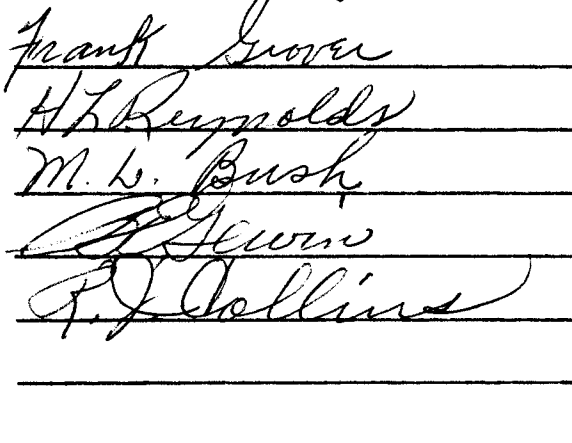 Frank Grover
H L Reynolds
M. L. Bush
Gewin
R. J. Collins